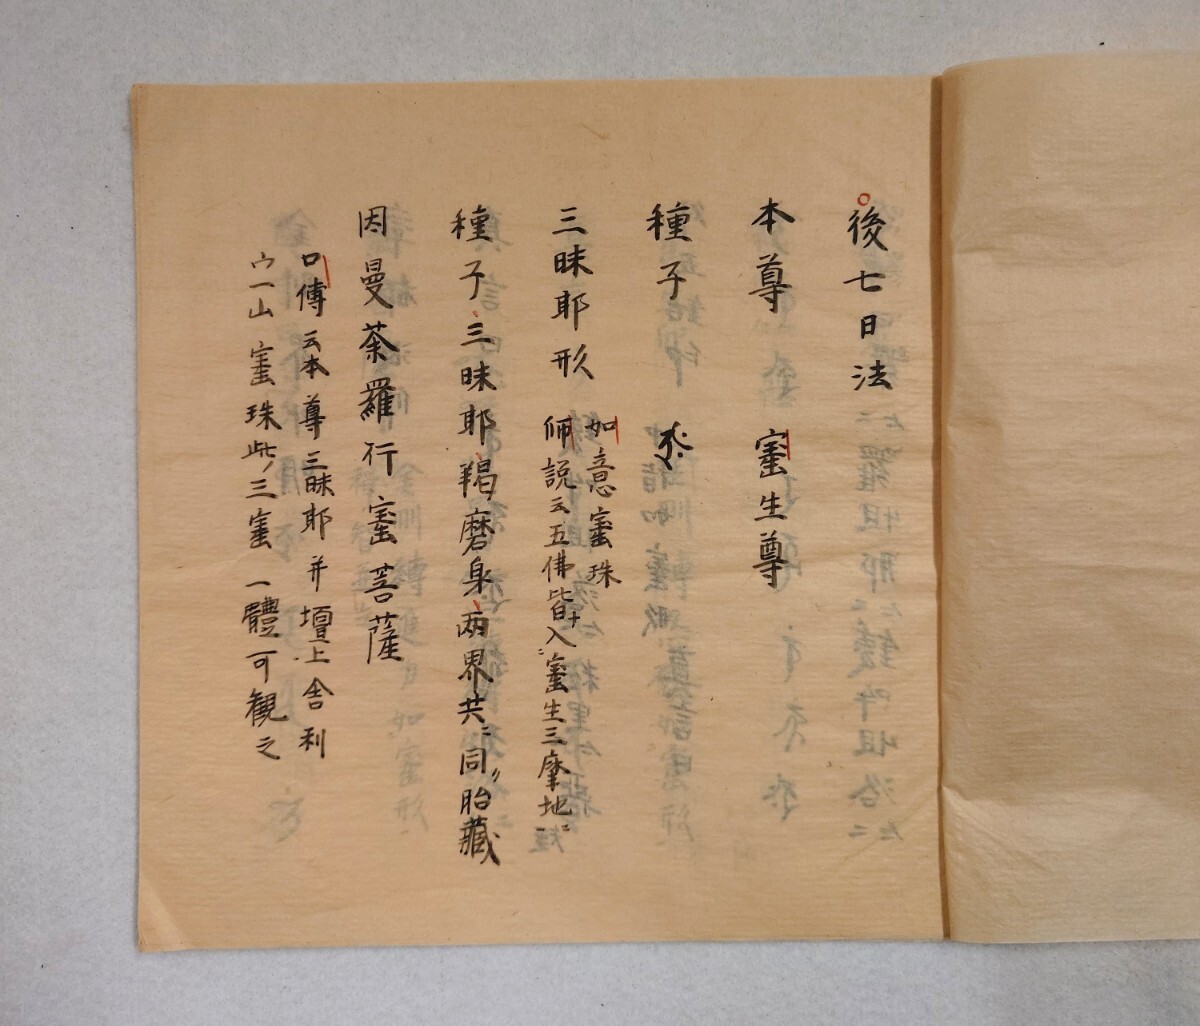 後七日法
本尊　寚生尊
種子
三昧耶形　如意寚珠
師説云五佛皆ナ入寚生三摩地ニ
種子三昧耶羯磨身両界共ニ同胎藏
因曼荼羅行寚菩薩
口傳云本尊三昧耶并壇上舎利
宀一山寚珠此ノ三寚一體可観之